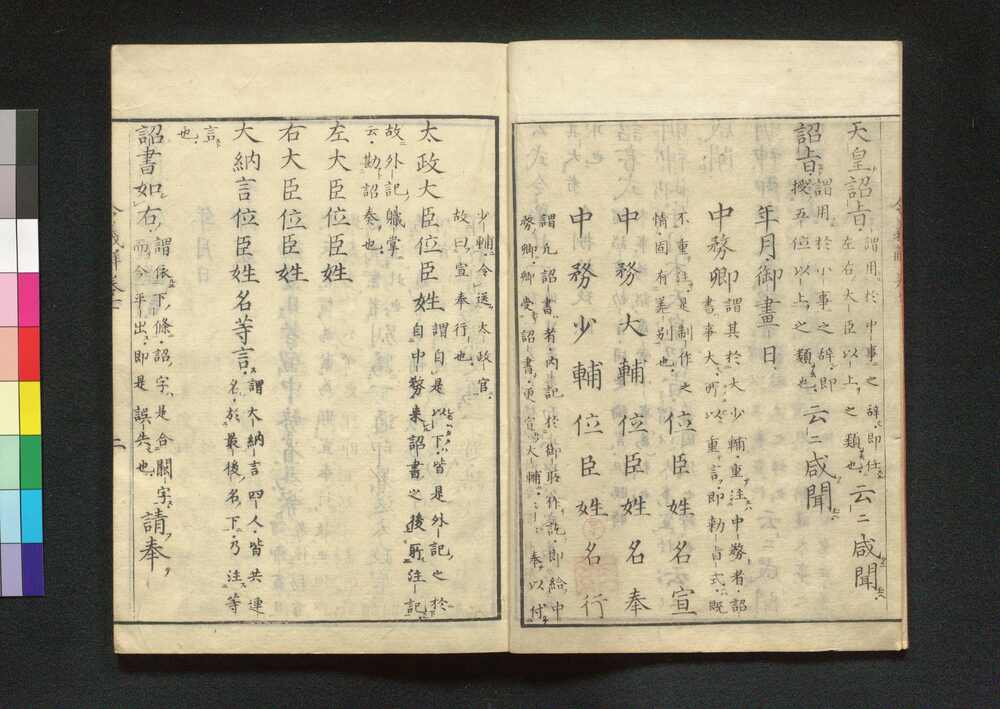 天皇詔旨謂用於中事之辞即任
左右大臣以上之類也云〻咸聞
詔旨謂用於小事之辞即
授五位以上之類也云〻咸聞
年月御畫日
中務卿謂其於大少輔重注中務者詔
書事大所以重言即勅旨式既
不重注是制作之
情固有差別也位臣姓名宣
中務大輔位臣姓名奉
中務少輔位臣姓名行
謂凡詔書者内記於御所作訖即給中
務卿卿受詔書更宣大輔〻〻奉以付
少輔令送太政官
故曰宣奉行也
太政大臣位臣姓謂自是以下皆是外記之於
自中務来詔書之後所注記
故外記職掌
云勘詔奏也
左大臣位臣姓
右大臣位臣姓
大納言位臣姓名等言謂大納言四人皆共連
名於最後名下乃注等
言
也
詔書如右謂依下條詔字是合闕字
而今平出即是誤失也請奉
二